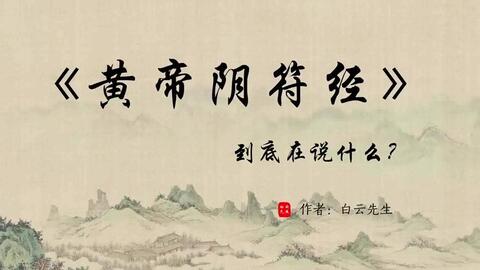 《黄帝阴符经》
到底在说什么？
作者：白云先生